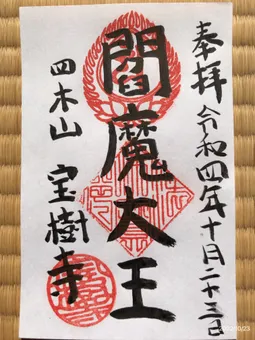 奉拝 令和四年十月二十三日
閻魔大王
四木山 宝樹寺